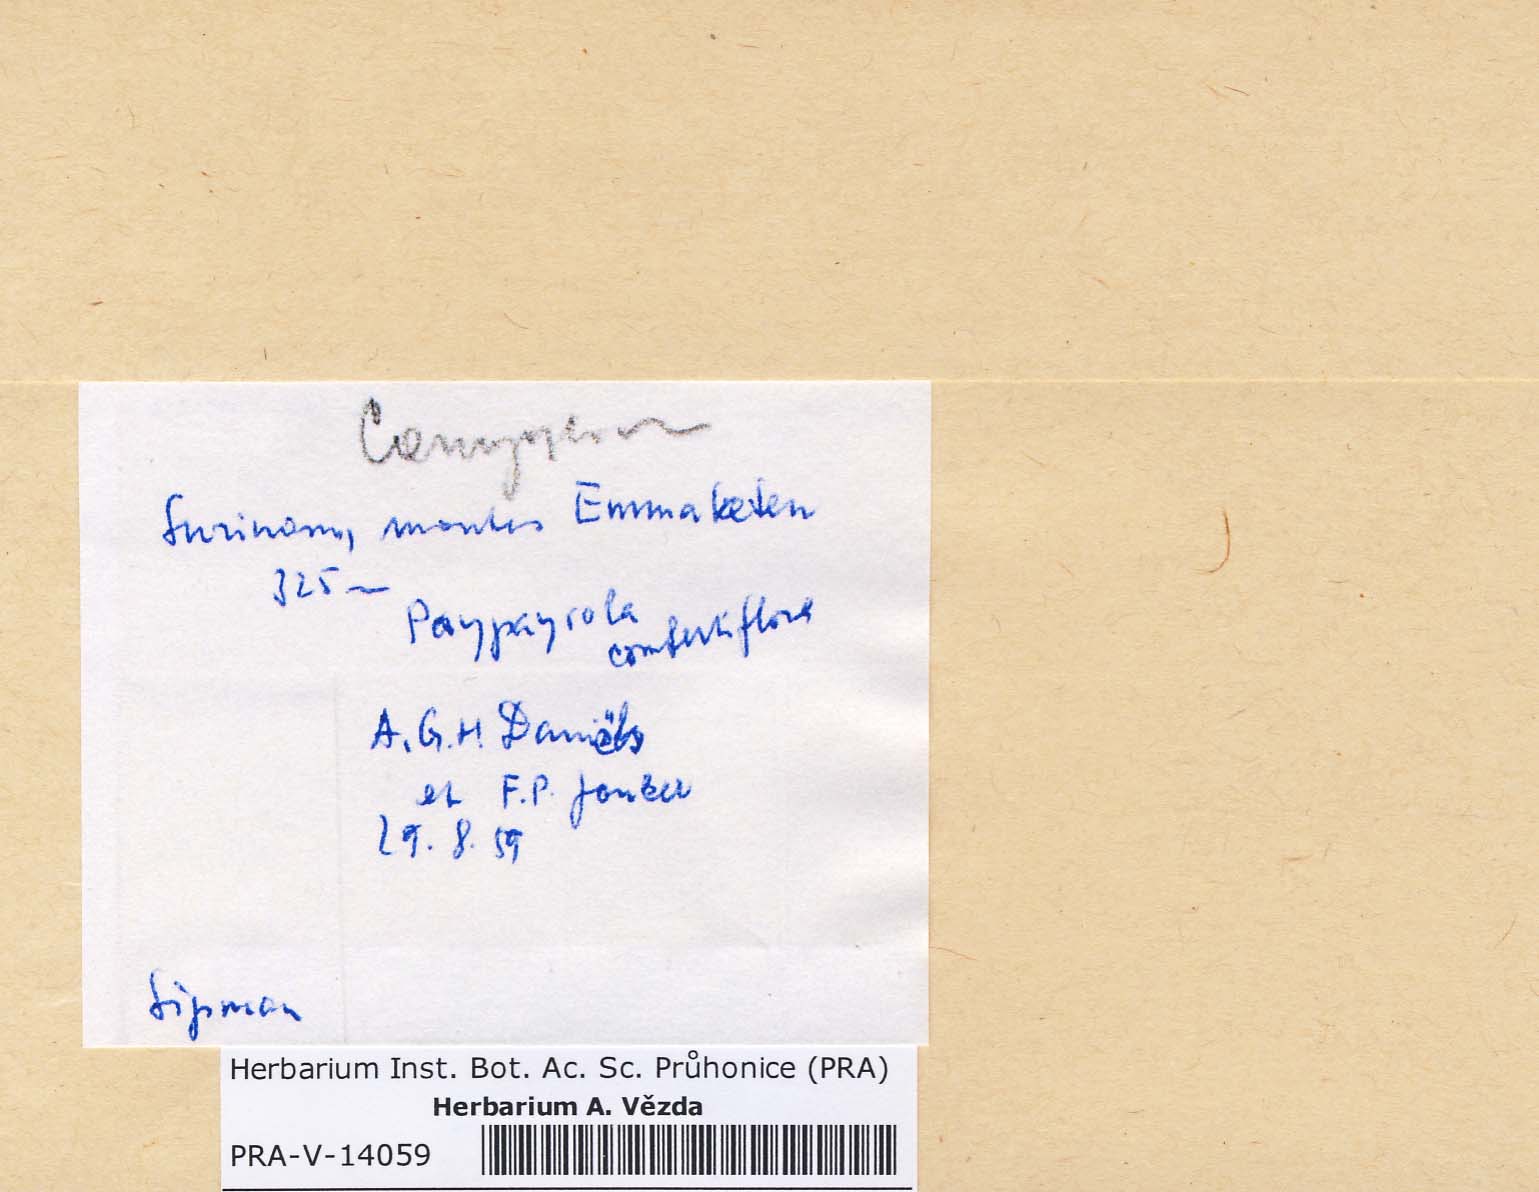 Surinam, montes Emmaketen
325 m
Paypayrola
confertiflora
A.G.H. Daniëls
et F.P. Jonker
29. 8. 59
Sipman
Herbarium Inst. Bot. Ac. Sc. Průhonice (PRA)
Herbarium A. Vězda
PRA-V-14059